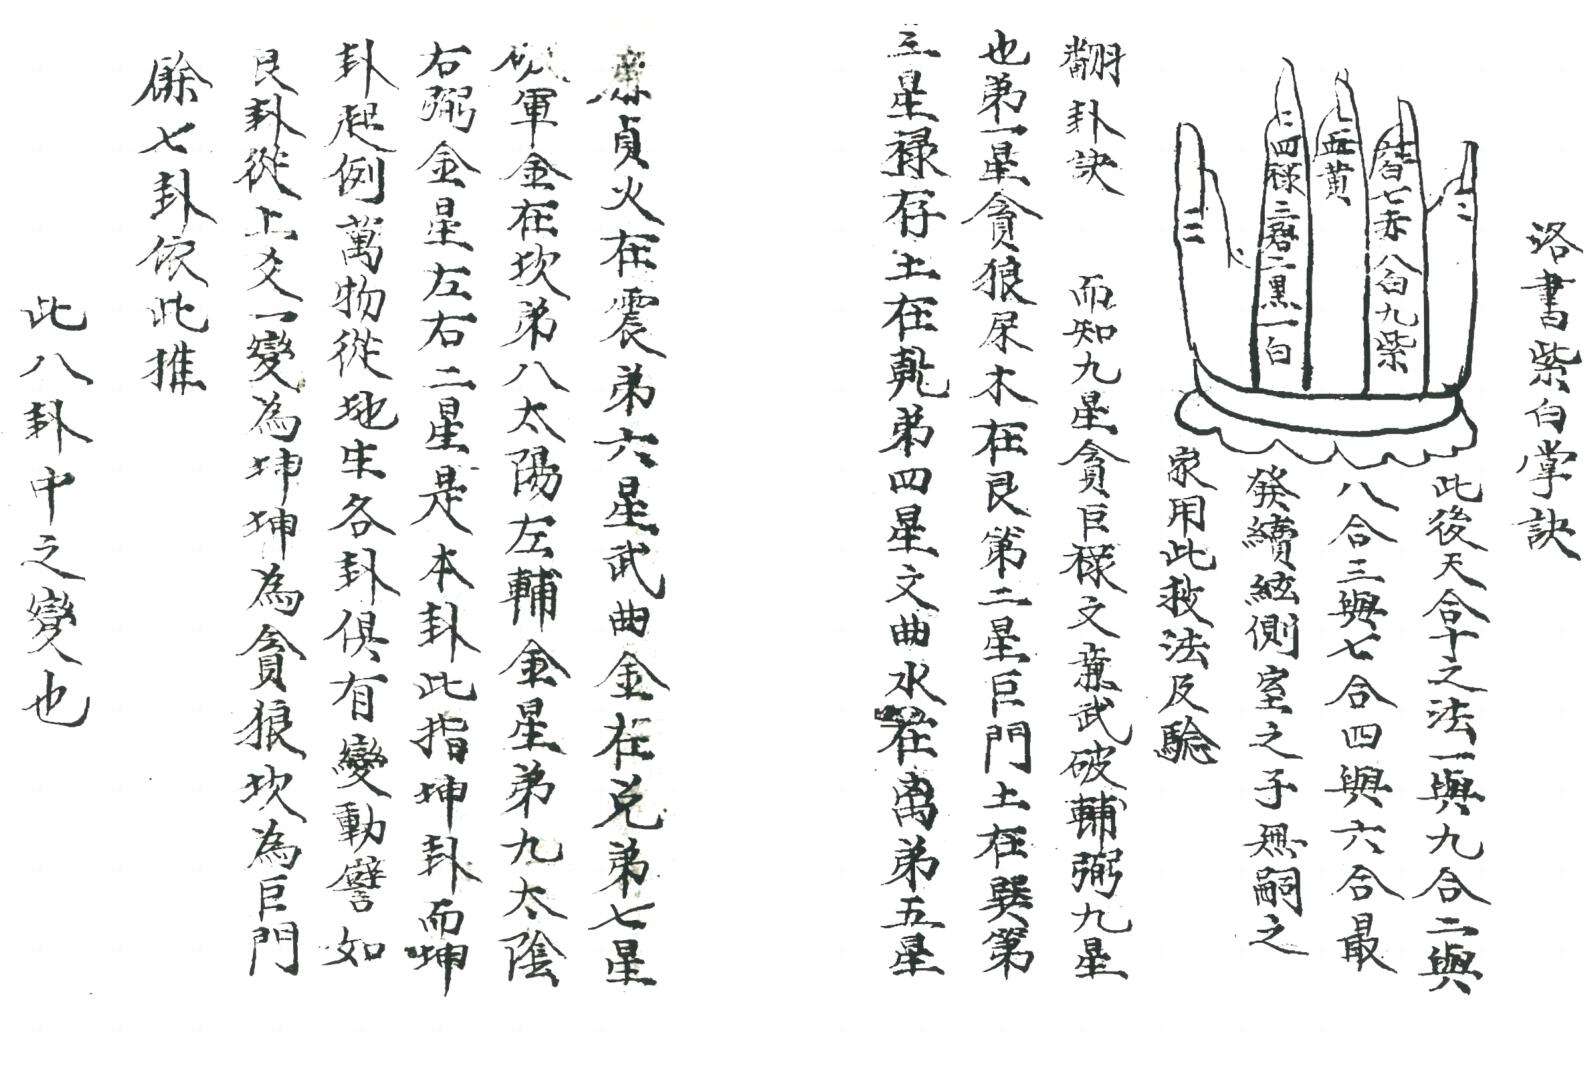 洛書紫白掌訣
六七赤八白九紫
五黃
四禄三碧二黒一白
此後天合十之法一與九合二與
八合三與七合四與六合最
發續絃側室之子無嗣之
家用此救法及驗
翻卦訣 而知九星貪巨禄文蔗武破輔弼九星
也弟一星貪狼屎木在艮第二星巨門土在巽第
三星禄存土在乹弟四星文曲水在离弟五星
廉貞火在震弟六星武曲金在兑弟七星
破軍金在坎弟八太陽左輔金星弟九太陰
右弼金星左右二星是本卦此指坤卦而坤
卦起例萬物從地生各卦俱有變動譬如
艮卦從上爻一變為坤坤為貪狼坎為巨門
餘七卦依此推
此八卦中之變也